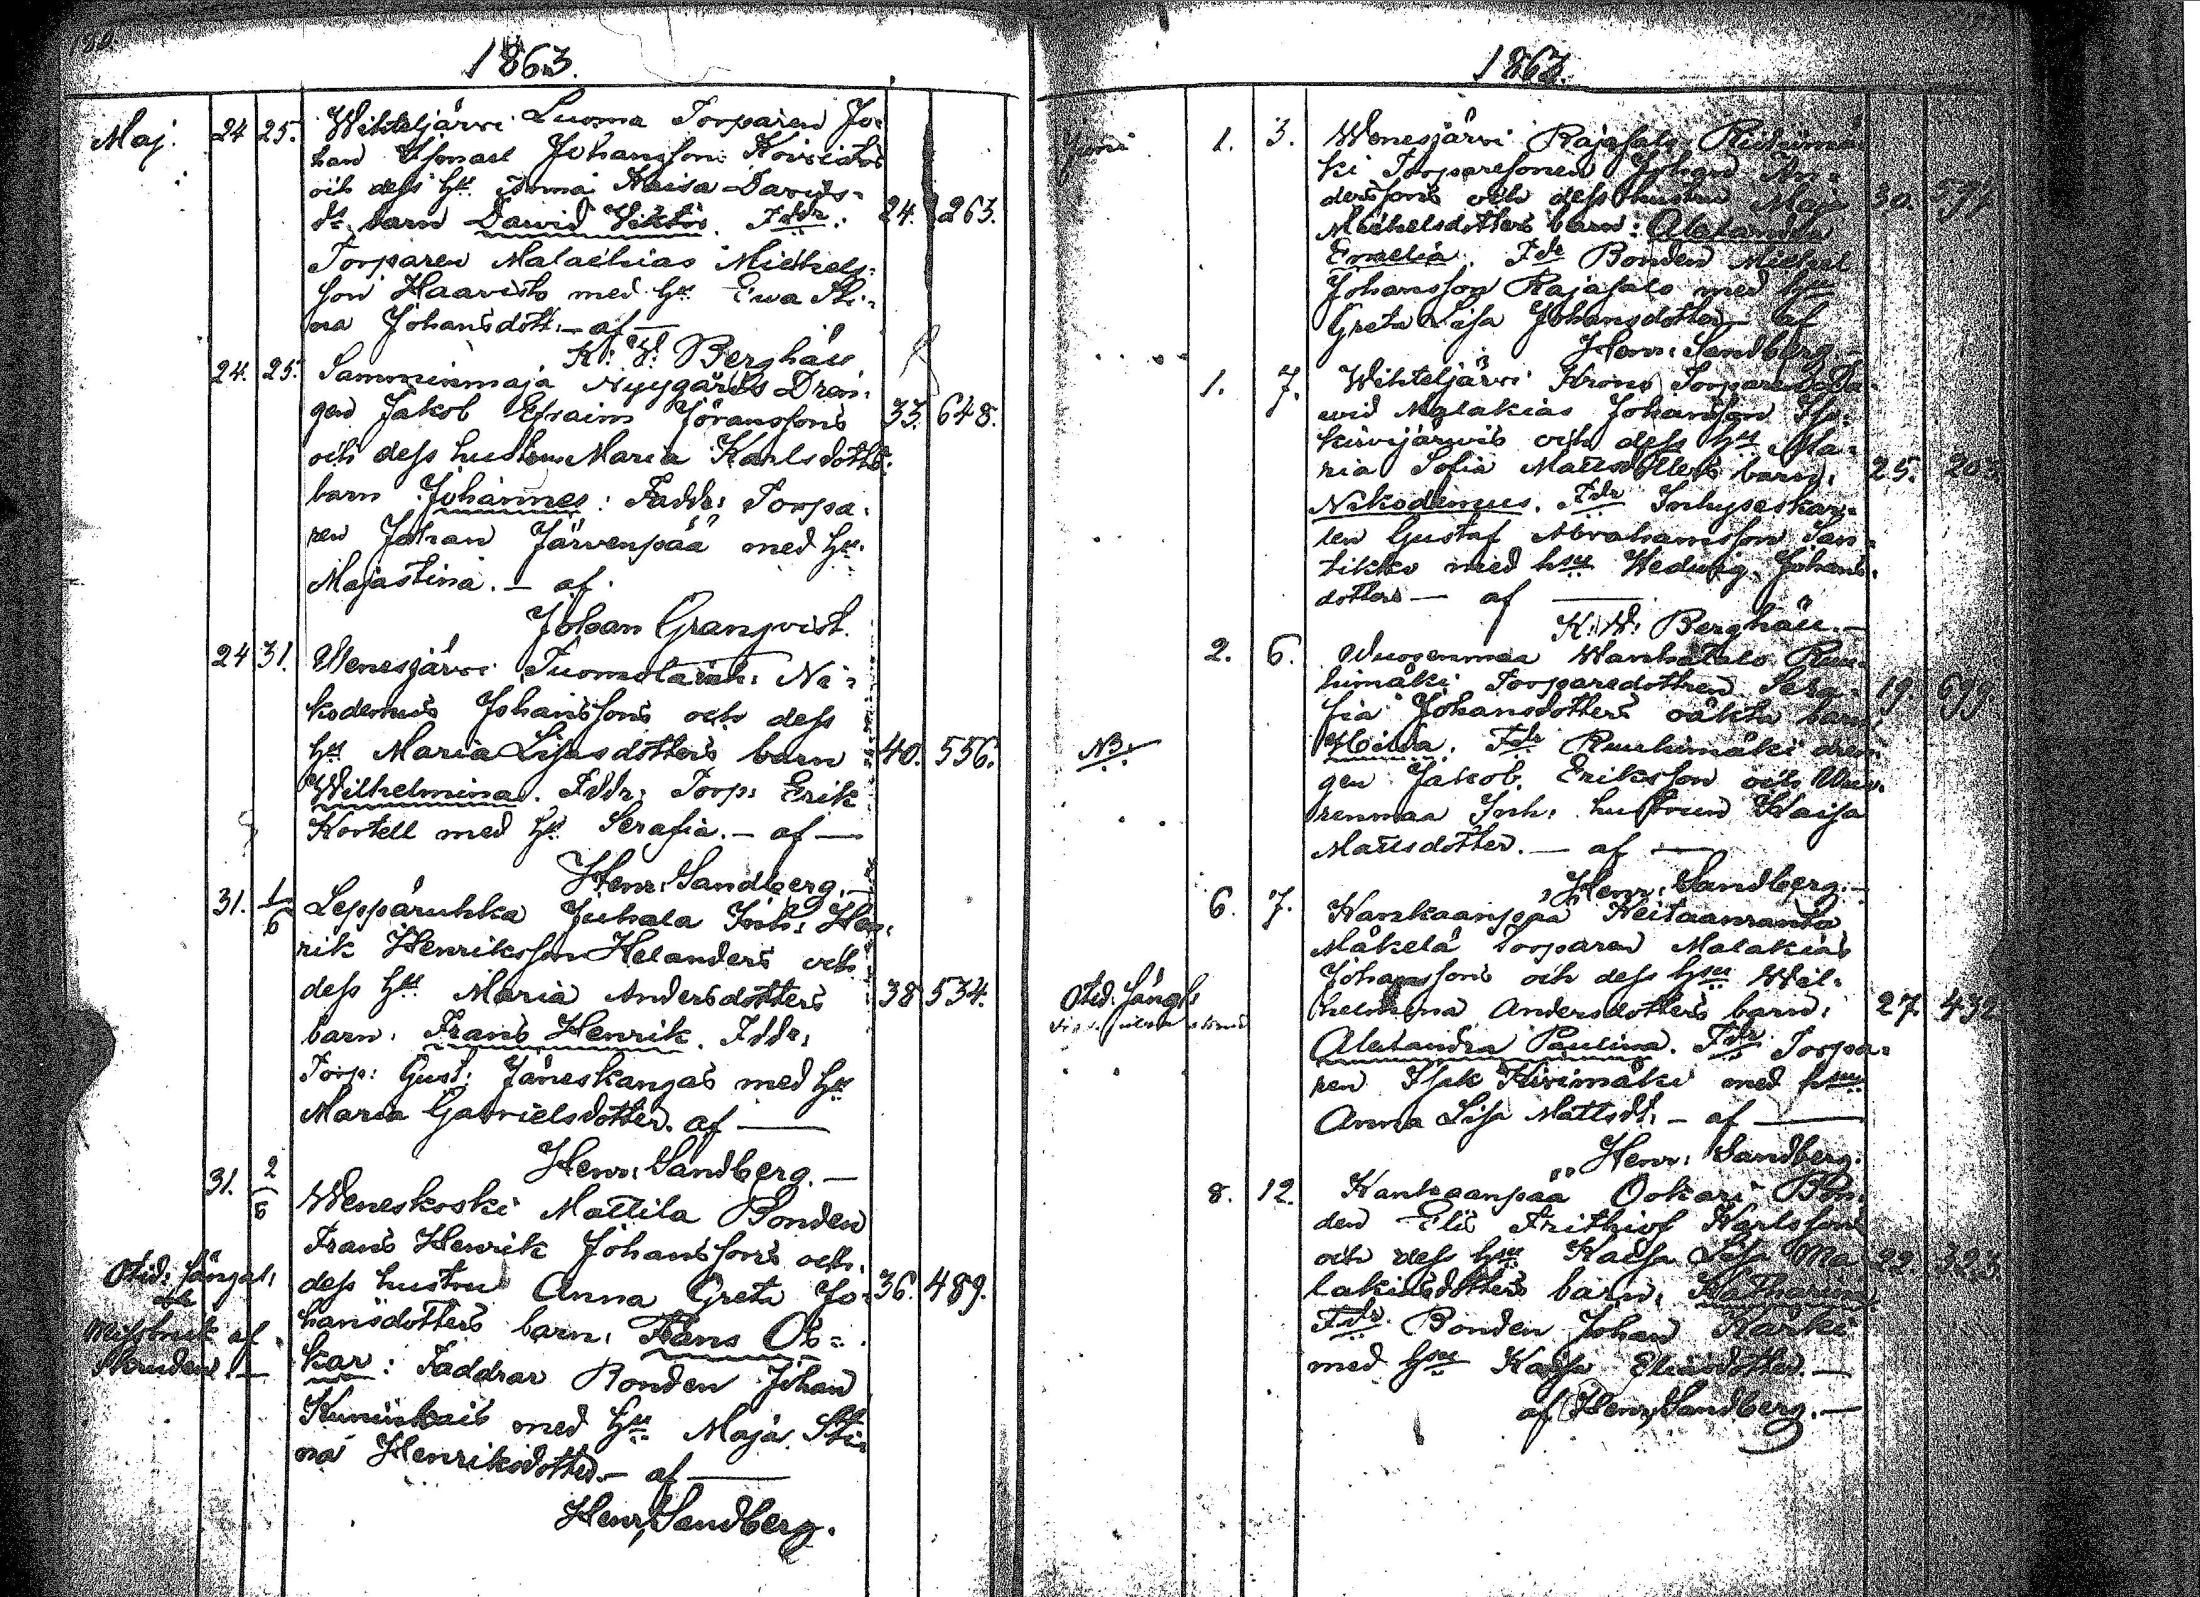 180.
1863.
Maj. 24 25. Wihteljärvi Luoma Torparen Jo-
han Ismael Johansson Koivistos
och dess hu Anna Kaisa Davids-
dr barn David Viktor. Fddr: 24. 263.
Torparen Malachias Michels-
son Haavisto med hu Eva Sti-
na Johansdott: – af –
K: W: Berghäll
24. 25. Samminmaja Nyygårds Drän-
gen Jakob Efraim Göranssons 33. 648.
och dess hustru Maria Karlsdotts:
barn Johannes: Faddr: Torpa-
ren Johan Järvenpää med hu:
Majastina. – af.
Johan Granqvist.
24 31. Wenesjärvi Tuomola inh: Ni-
kodemus Johanssons och dess
hu Maria Lisasdotters barn 40. 556.
Wilhelmina. Fddr: Torp: Erik
Kortell med hu Serafia. – af –
Henr: Sandberg. –
31. 1/6 Leppäruhka Juhala Inh: Hen-
rik Henriksson Helanders och
dess hu Maria Andersdotters 38 534.
barn: Frans Henrik. Fddr:
Torp: Gust: Jäneskangas med hu
Maria Gabrielsdotter. af –
Henr: Sandberg. –
31. 2/6 Weneskoski Mattila Bonden
Frans Henrik Johanssons och
Otid: sängel:
dess hustru Anna Greta Jo- 36. 489.
Missbruk af
hansdotters barn: Frans Os-
kar: Faddrar Bonden Johan
med hu Maja Sti-
na Henriksdotter. – af –
Henr: Sandberg.
1863.
Juni 1. 3. Wenesjärvi Rajasalo
ki Torparesonen Johan An-
derssons och dess hustru Maja 30. 597
Michelsdotters barn: Alexandra
Emelia. Fdr Bonden Michel
Johansson Rajasalo med hsu
Greta Lisa Johansdotter – af
Henr: Sandberg. –
1. 7. Wihteljärvi Krono Torparen Da-
vid Malakias Johansson Iso-
kivijärvis och dess hsu Ma-
ria Sofia Mattsdotters barn: 25. 203
Nikodemus. Fdr Inhyseskar-
len Gustaf Abrahamsson San-
tikko med hsu Hedvig Johans-
dotter – af –
K: W: Berghäll. –
2. 6. Wuorenmaa Wanhatalo Ruu-
himäki Torparedottren Sera- 19. 699
fia Johansdotters oäkta barn:
NB: Hilda. Fdr Ruuhimäki drän-
gen Jakob Eriksson och Wuo-
renmaa Inh: hustrun Kaisa
Mattsdotter. – af –
Henr: Sandberg. –
6. 7. Kankaanpää Keitaanranta
Mäkelä Torparen Malakias
Johanssons och dess hsu Wil-
Otid: sängl:
helmina Andersdotters barn: 27. 432
Alexandra Paulina. Fdr Torpa-
ren Isak Kivimäki med hsu
Anna Lisa Mattsdr. – af –
Henr: Sandberg.
8. 12. Kankaanpää Ookari Bon-
den Elis Frithiof Karlssons
och dess hsu Kaisa Lisa Ma 22 323.
lakiasdotters barn: Katharina.
Fdr. Bonden Johan Kärki
med hsu Kajsa Eliasdotter. –
af Henr: Sandberg. –